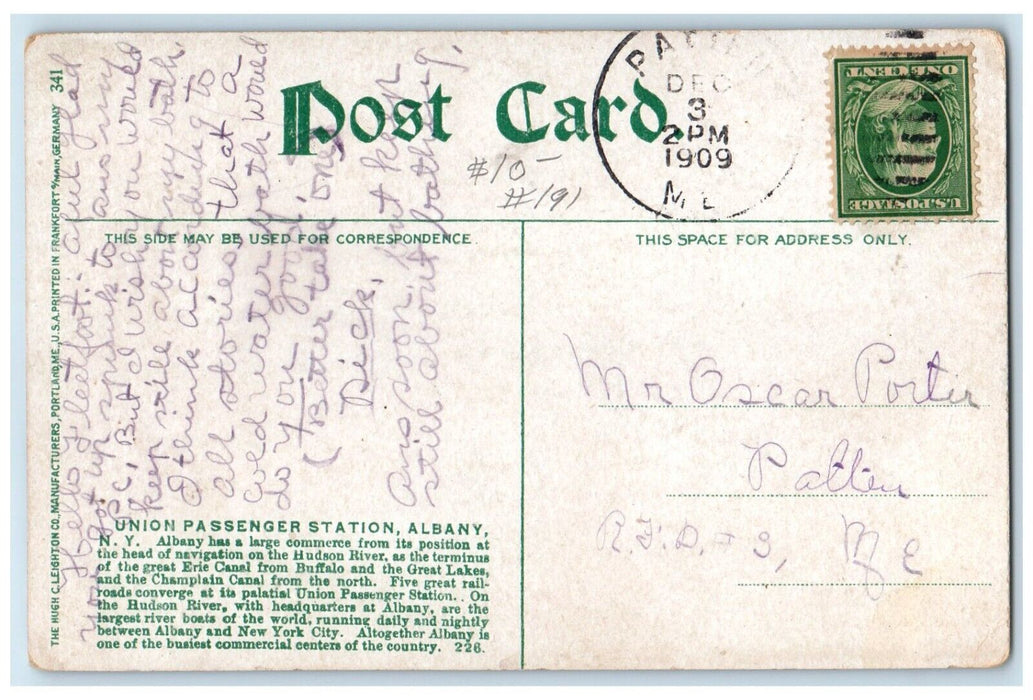 Post Card
$10-
#191
PAT
DEC
3
2 PM
1909
ME
U.S. POSTAGE
ONE CENT
THIS SIDE MAY BE USED FOR CORRESPONDENCE.
THIS SPACE FOR ADDRESS ONLY.
Hello foot: aful glad
you got up spunk to ans my
P.C. But I wish you would
keep still about my bath,
I think according to
all stories that a
cold water bath would
do you good,
(Better take one)
Dick,
Ans soon, but keep
still about bathing,
Mr Oscar Porter
Patten
R.F.D. # 3, Me
UNION PASSENGER STATION, ALBANY,
N. Y. Albany has a large commerce from its position at
the head of navigation on the Hudson River, as the terminus
of the great Erie Canal from Buffalo and the Great Lakes,
and the Champlain Canal from the north. Five great rail-
roads converge at its palatial Union Passenger Station. On
the Hudson River, with headquarters at Albany, are the
largest river boats of the world, running daily and nightly
between Albany and New York City. Altogether Albany is
one of the busiest commercial centers of the country. 226.
THE HUGH C. LEIGHTON CO., MANUFACTURERS, PORTLAND, ME., U.S.A. PRINTED IN FRANKFORT a/MAIN, GERMANY 341